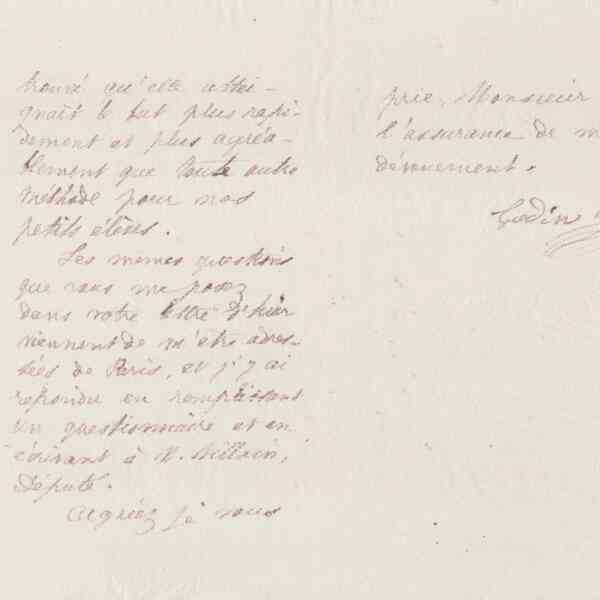 trouvé qu'elle attei-
gnait le but plus rapi-
dement et plus agréa-
blement que toute autre
méthode pour nos
petits élèves.
Les mêmes questions
que vous me posez
dans votre lettre d'hier
viennent de m'être adres-
sées de Paris, et j'y ai
répondu en remplissant
un questionnaire et en
écrivant à M.
Député.
Agréez je vous
prie, Monsieur
l'assurance de m
dévouement.
Godin